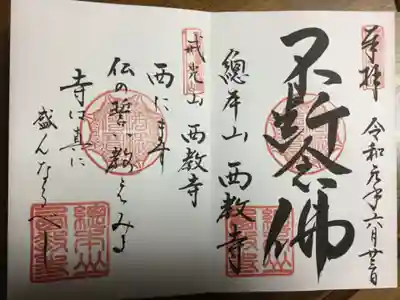 奉拝
令和元年六月廿三日
不断念佛
總本山 西教寺
戒光山 西教寺
西にます
仏の誓の教をみる
寺は真に
盛んなるべし